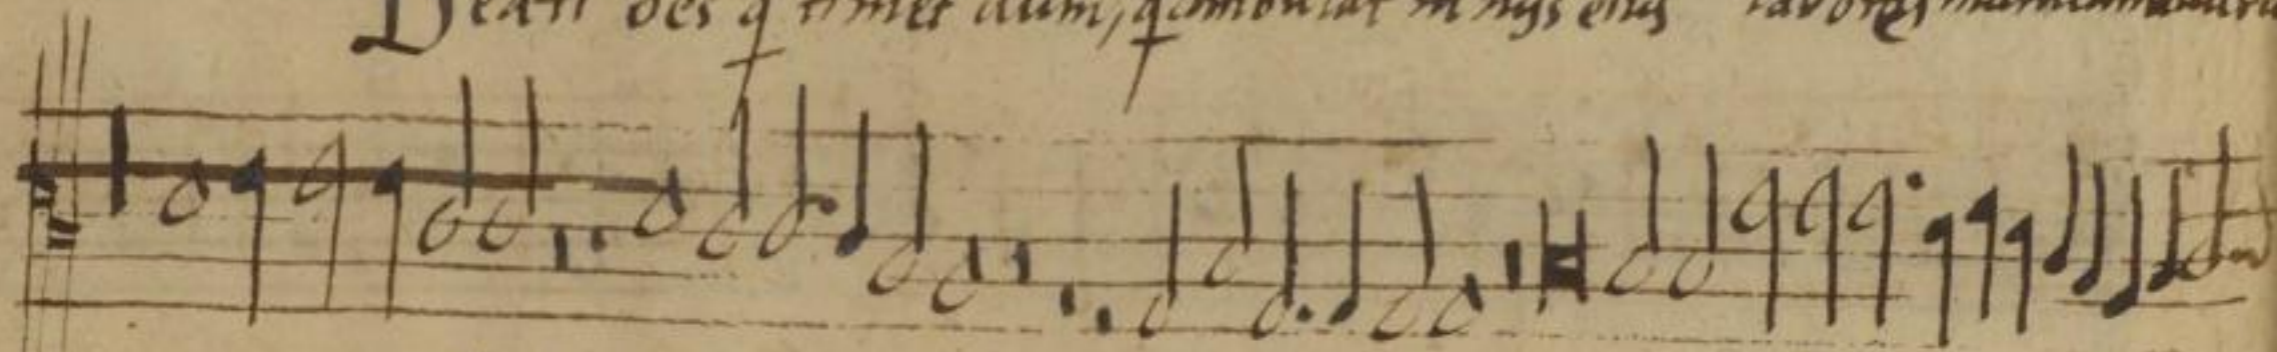 Beati oēs q timēt dūm, q ambulāt in vijs eius labores manuum